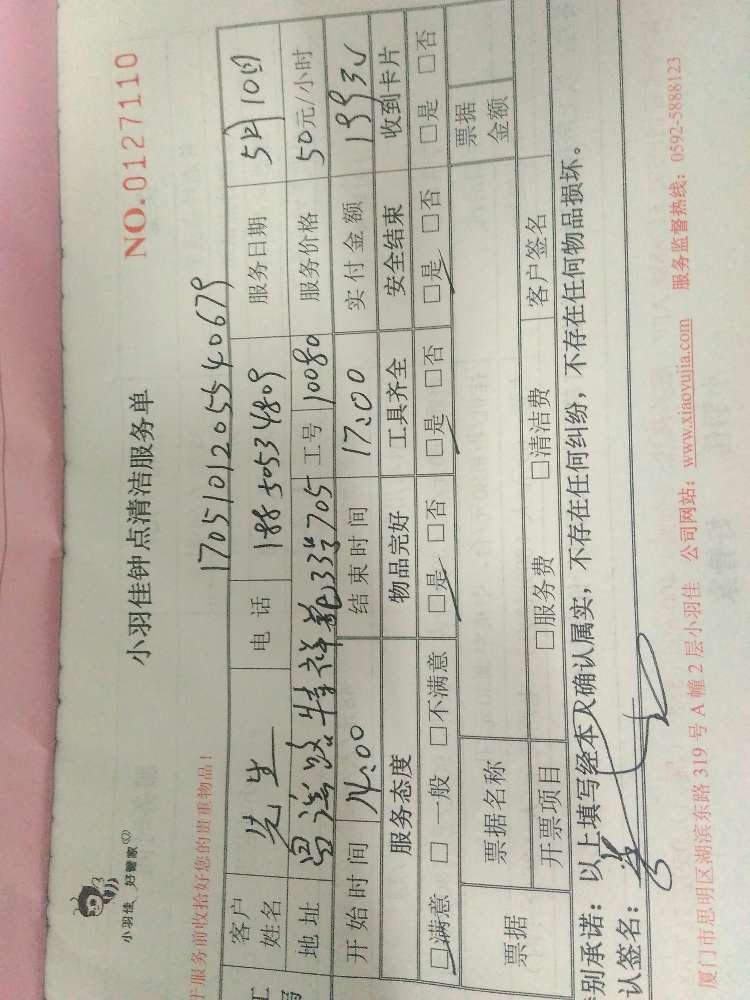 小羽佳 好管家
小羽佳钟点清洁服务单
NO.0127110
于服务前收拾好您的贵重物品！
170510120554 0679
客户姓名 先生 电话 188 5053 4809 服务日期 5月10日
地址 吕洪路 特祥 33号705 工号 10080 服务价格 50元/小时
开始时间 14:00 结束时间 17:00 实付金额
服务态度 物品完好 工具齐全 安全结束 收到卡片
□满意 □一般 □不满意 □是 □否 □是 □否 □是 □否 □是 □否
票据 票据名称 票据金额
开票项目 □服务费 □清洁费 客户签名
别承诺：以上填写经本人确认属实，不存在任何纠纷，不存在任何物品损坏。
认签名：
厦门市思明区湖滨东路 319 号 A 幢 2 层小羽佳 公司网站：www.xiaoyujia.com 服务监督热线：0592-5888123